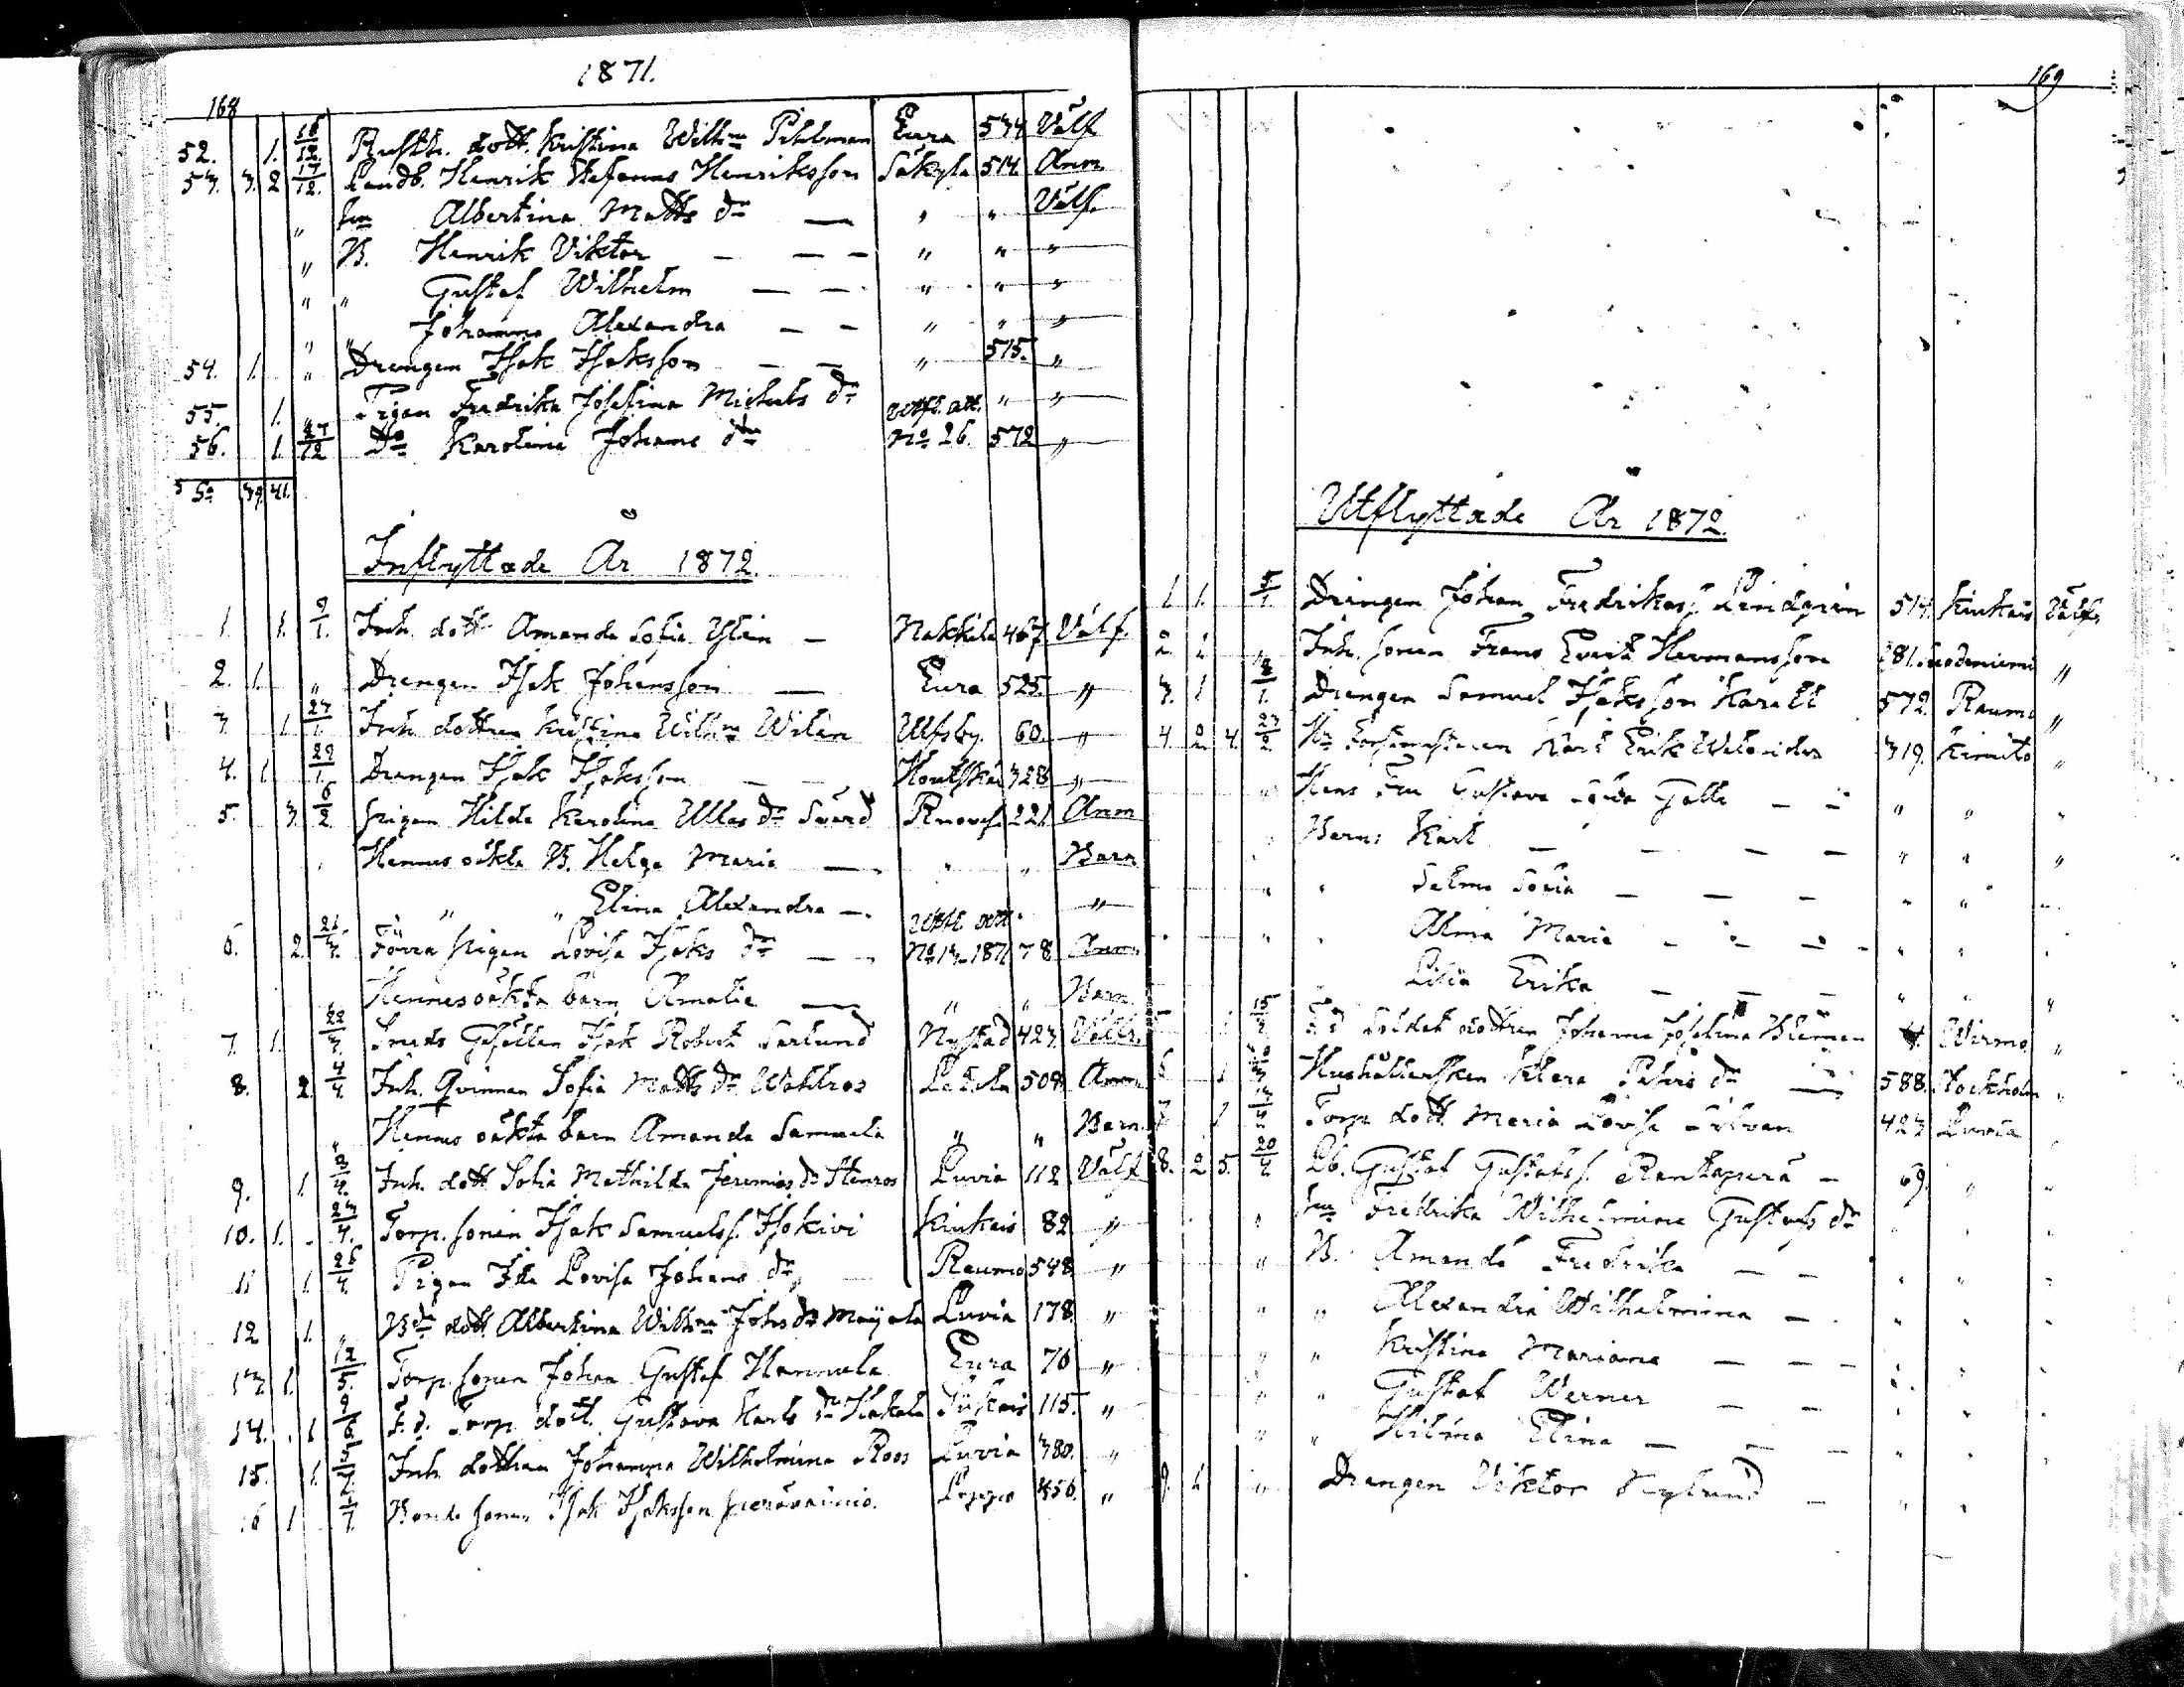 1871.
168
52. 1. 16/12. Rusth. dott. Kristina Wilh:na Pihlman Eura 534 Välf
53. 3. 2 17/12. Landb. Henrik Stefanus Henriksson Säkylä 514. Anm
„ hu Albertina Matts dr — „ „ Välf.
„ B. Henrik Viktor — — — „ „ „
„ „ Gustaf Wilhelm — — „ „ „
„ „ Johanna Alexandra — — „ „ „
54. 1. „ Drengen Isak Isaksson — — „ 515. „
55. 1. „ Pigan Fredrika Josefina Michels dr „ „
56. 1. 27/12 Do Karolina Johans dr utfl. att. No 26. 572 „
Sa 39. 41.
Inflyttade År 1872.
1 1. 9/1. Inh. dott Amanda Sofia — Nakkila 467 Välf.
2. 1. „ Drengen Isak Johansson — Eura 525. „
3. 1. 23/1. Inh. dottren Kristina Wilh:na Wilén Ulfsby. 60. „
4. 1. 29/1. Drengen Isak Isaksson — — Houtskär 328 „
5. 3. 6/2. Pigan Hilda Karolina Ullas dr Svärd 221 Anm
Hennes oäkta B. Helga Maria — „ „ Barn
„ „ Elina Alexandra — „
6. 2. 26/3. Förra pigan Lovisa Isaks dr — — utfl. att No 13 1871 78 Anm
Hennes oäkta barn Amalia — „ „ Barn.
7. 1. 22/3. Smeds Gesällen Isak Robert Sarlund Nystad 423. Välfr.
8. 2. 4/4. Inh. Qvinnan Sofia Matts dr Wahlros 509. Anm
„ Hennes oäkta barn Amanda Samuela „ „ Barn.
9. 1. Inh. dott. Sofia Mathilda Jeremias dr Stenros Luvia 112 Välf
10. 1. 23/4. Torp. sonen Isak Samuelss. Isokivi Kiukais 82. „
11 1. 26/4. Pigan Ida Lovisa Johans dr — Raumo 548. „
12 1. „ Bde dott. Albertina Wilh:na Johs dr Luvia 178. „
13. 1. 12/5. Torp. sonen Johan Gustaf Hannula Eura 76 „
14. 1 9/6 F.d. Torp. dott. Gustava Karls dr 115. „
15. 1. Inh. dottren Johanna Wilhelmina Roos Luvia 380. „
16 1 Bonde sonen Isak Isaksson Lappo 456. „
169
Utflyttade År 1872.
1. 1. 5/1. Drengen Johan Fredrikss. Lindgren 514. Kiukais Välfr.
2. 1 „ Inh. sonen Frans Evert Hermansson 281. „
3. 1 Drengen Samuel Isaksson Karell 572. Raumo „
4 2. 4. 23/2 Hr Karl Erik Welander 319. Kimito „
„ Hans Fru Gustava Galle — — „ „ „
„ Barn: Karl — — — — „ „ „
„ „ Selma Sofia — — — „ „ „
„ „ Alma Maria — — — — „ „ „
„ Erika — — — „ „ „
5 1 F.d Soldat dottren Johanna Josefina Wirmo „
6 1 Hushållerskan Klara dr — 588. Stockholm „
7 1 Torp. dott. Maria Lovisa 423 Luvia „
8. 2 5. 20/4 Lb. Gustaf Gustafss. Rantapere — 69. „
„ hu Fredrika Wilhelmina Gustafs dr „ „ „
„ B. Amanda Fredrika — — „ „ „
„ „ Alexandra Wilhelmina — „ „ „
„ „ Kristina Mariana — — — „ „ „
„ „ Gustaf Werner — — „ „ „
„ „ Hilma Elina — — — „ „ „
9. 1 „ Drengen Viktor Nylund — „ „